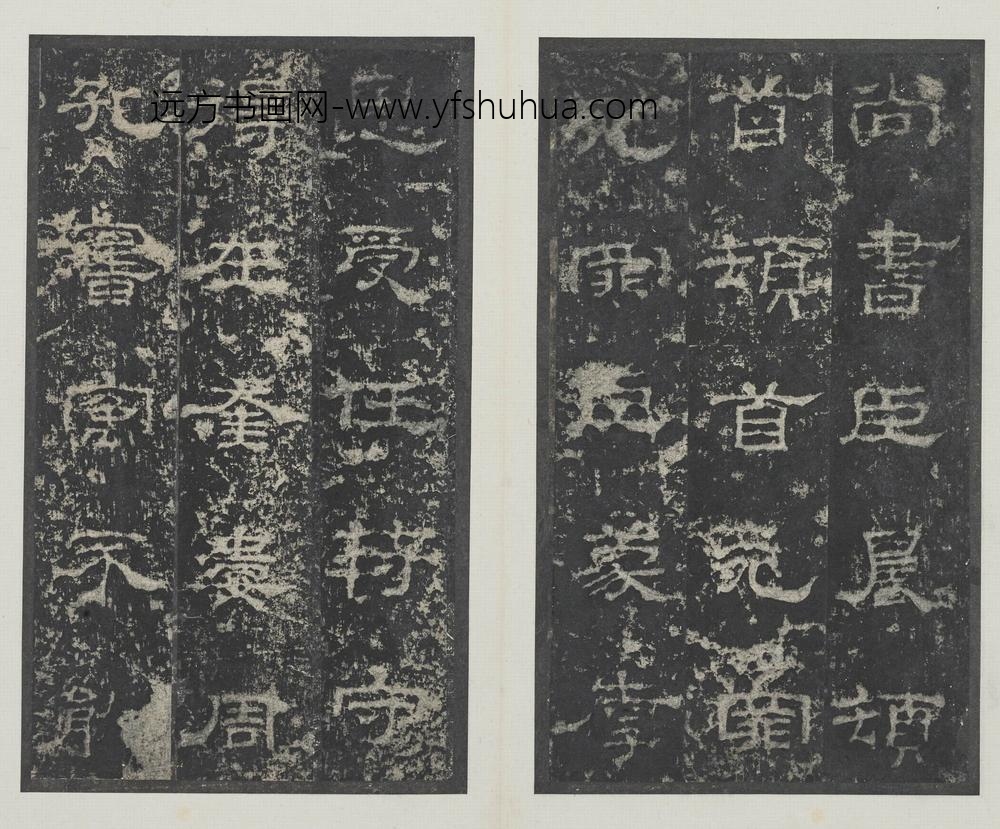 远方书画网-www.yfshuhua.com
尚書臣晨頓
首頓首死罪
死罪臣蒙厚
恩受任符守
得在奎婁周
孔舊寓不能